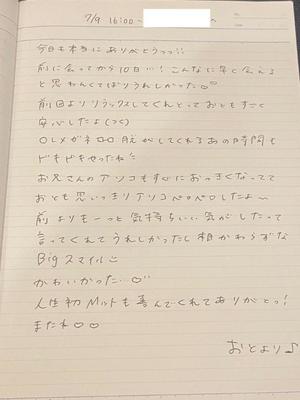 7/9 16:00~
今日も本当にありがとうっっ!!
前に会ってから10日…!こんなに早く会える
と思わんくてばりうれしかった♡♡
前回よりリラックスしてくれとっておともすごく
安心したよ(つく)
メガネ 脱がしてくれるあの時間も
ドキドキやったね
お兄さんのアソコもすぐにおっきくなってて
おとも思いっきりアソコペロペロしたよ〜
前よりもーっと気持ちいい気がしたって
言ってくれてうれしかったし相かわらずな
Bigスマイル
かわいかった…♡
人生初Mットも喜んでくれてありがとっ!
またね♡♡
おとより♪